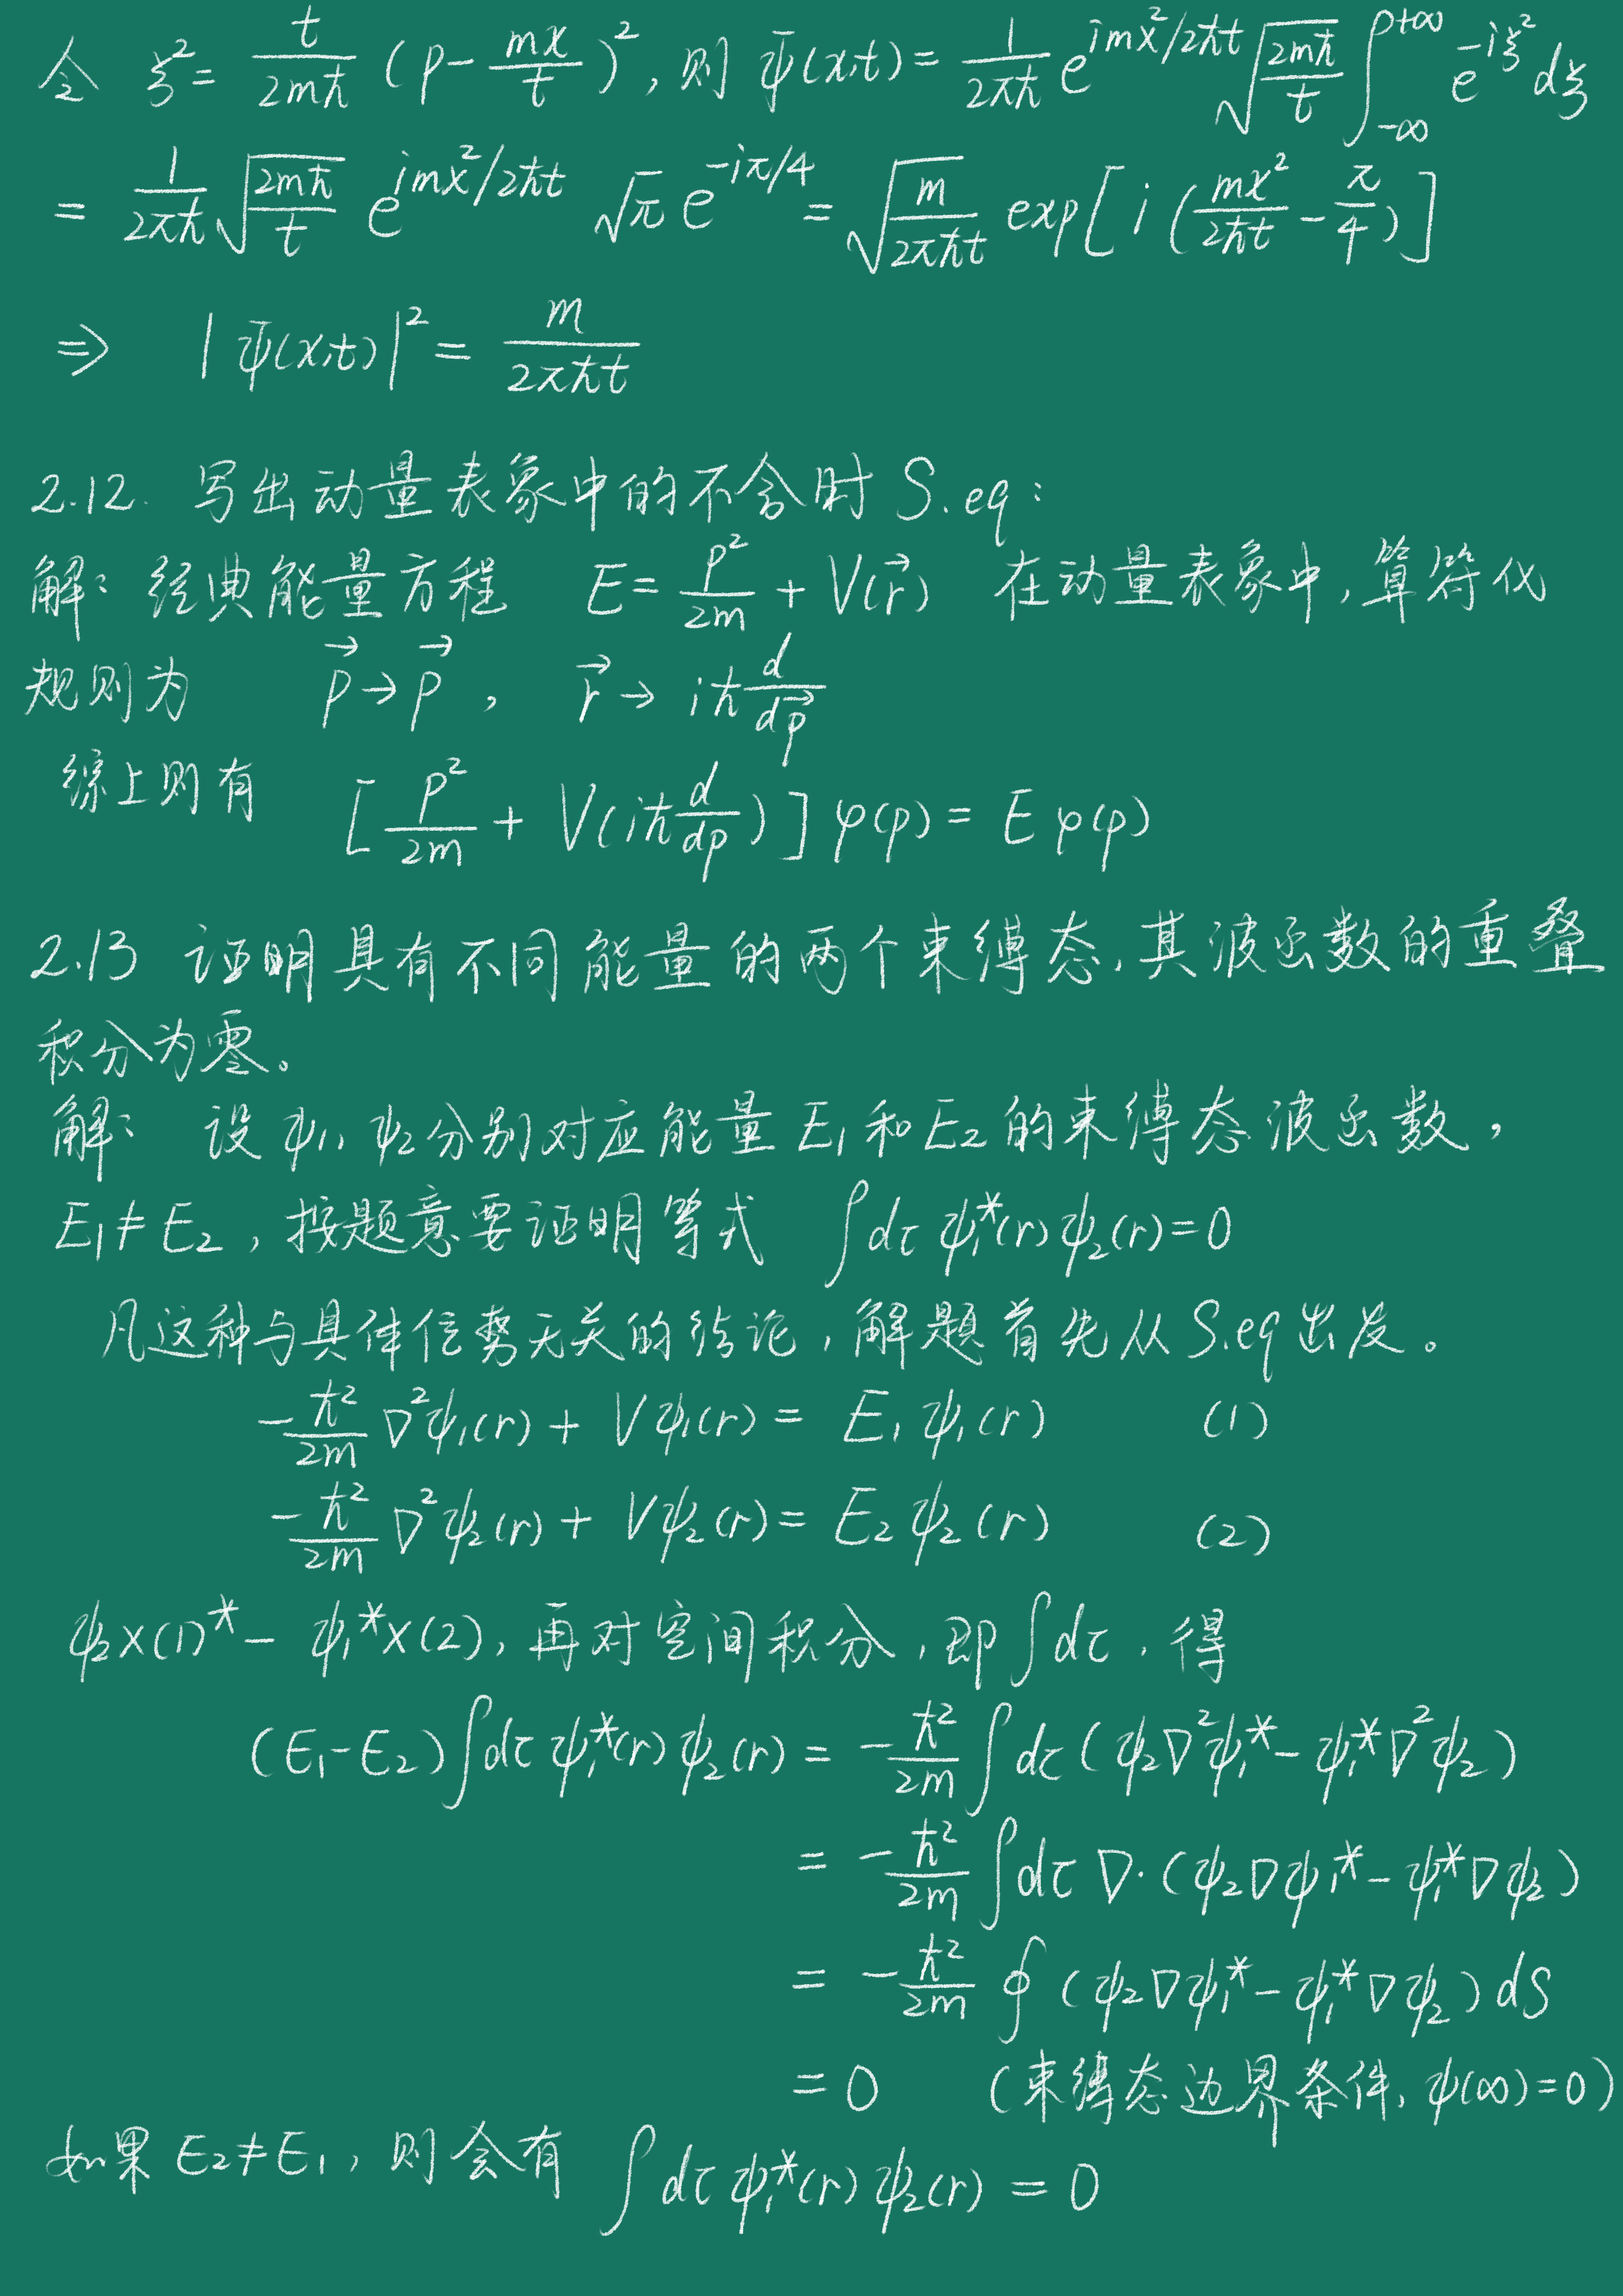 令 ξ² = t/2mħ (p - mx/t)², 则 ψ(x,t) = 1/2πħ e^{imx²/2ħt} √(2mħ/t) ∫_{-∞}^{+∞} e^{-iξ²} dξ
= 1/2πħ √(2mħ/t) e^{imx²/2ħt} √π e^{-iπ/4} = √(m/2πħt) exp[i(mx²/2ħt - π/4)]
⇒ |ψ(x,t)|² = m/2πħt
2.12. 写出动量表象中的不含时 S.eq:
解: 经典能量方程 E = p²/2m + V(r⃗) 在动量表象中,算符化
规则为 p⃗ → p⃗, r⃗ → iħ d/dp⃗
综上则有 [p²/2m + V(iħ d/dp)] φ(p) = E φ(p)
2.13 证明具有不同能量的两个束缚态,其波函数的重叠
积分为零。
解: 设 ψ₁, ψ₂ 分别对应能量 E₁ 和 E₂ 的束缚态波函数,
E₁ ≠ E₂, 按题意要证明等式 ∫dτ ψ₁*(r) ψ₂(r) = 0
凡这种与具体位势无关的结论,解题首先从 S.eq 出发。
-ħ²/2m ∇²ψ₁(r) + Vψ₁(r) = E₁ψ₁(r) (1)
-ħ²/2m ∇²ψ₂(r) + Vψ₂(r) = E₂ψ₂(r) (2)
ψ₂×(1)* - ψ₁*×(2), 再对空间积分,即∫dτ,得
(E₁-E₂)∫dτ ψ₁*(r) ψ₂(r) = -ħ²/2m ∫dτ (ψ₂∇²ψ₁* - ψ₁*∇²ψ₂)
= -ħ²/2m ∫dτ ∇·(ψ₂∇ψ₁* - ψ₁*∇ψ₂)
= -ħ²/2m ∮ (ψ₂∇ψ₁* - ψ₁*∇ψ₂) dS
= 0 (束缚态边界条件, ψ(∞)=0)
如果 E₂ ≠ E₁, 则会有 ∫dτ ψ₁*(r) ψ₂(r) = 0